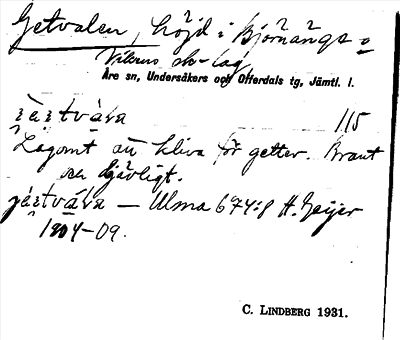 Getvalen, höjd i Björnängs o
Vikens sk-lag,
Åre sn, Undersåkers och Offerdals tg, Jämtl. l.
115
Lagomt att kliva för getter. Brant
och djävligt.
— Ulma 674:8 H. Geijer
1904–09.
C. LINDBERG 1931.